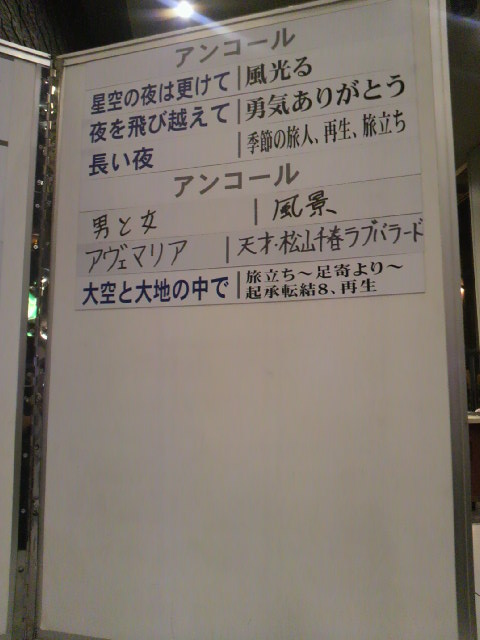 アンコール
星空の夜は更けて 風光る
夜を飛び越えて 勇気ありがとう
長い夜 季節の旅人、再生、旅立ち
アンコール
男と女 風景
アヴェマリア 天才・松山千春ラブバラード
大空と大地の中で 旅立ち~足寄より~
起承転結8、再生